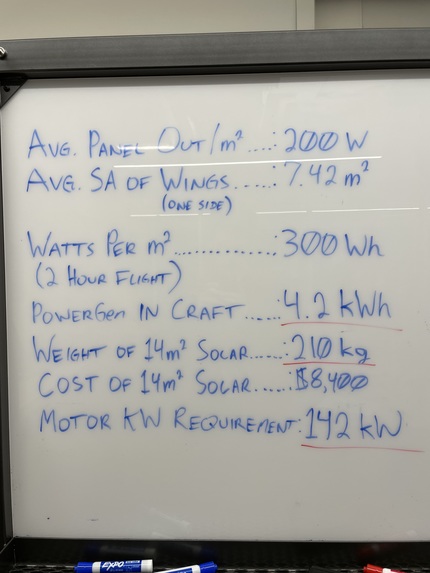 AVG. PANEL OUT/m²....: 200 W
AVG. SA OF WINGS.....: 7.42 m²
(ONE SIDE)
WATTS PER m²............: 300 Wh
(2 HOUR FLIGHT)
POWERGEN IN CRAFT.....: 4.2 kWh
WEIGHT OF 14m² SOLAR.....: 210 kg
COST OF 14m² SOLAR.....: $8,400
MOTOR KW REQUIREMENT: 142 kW
EXPO